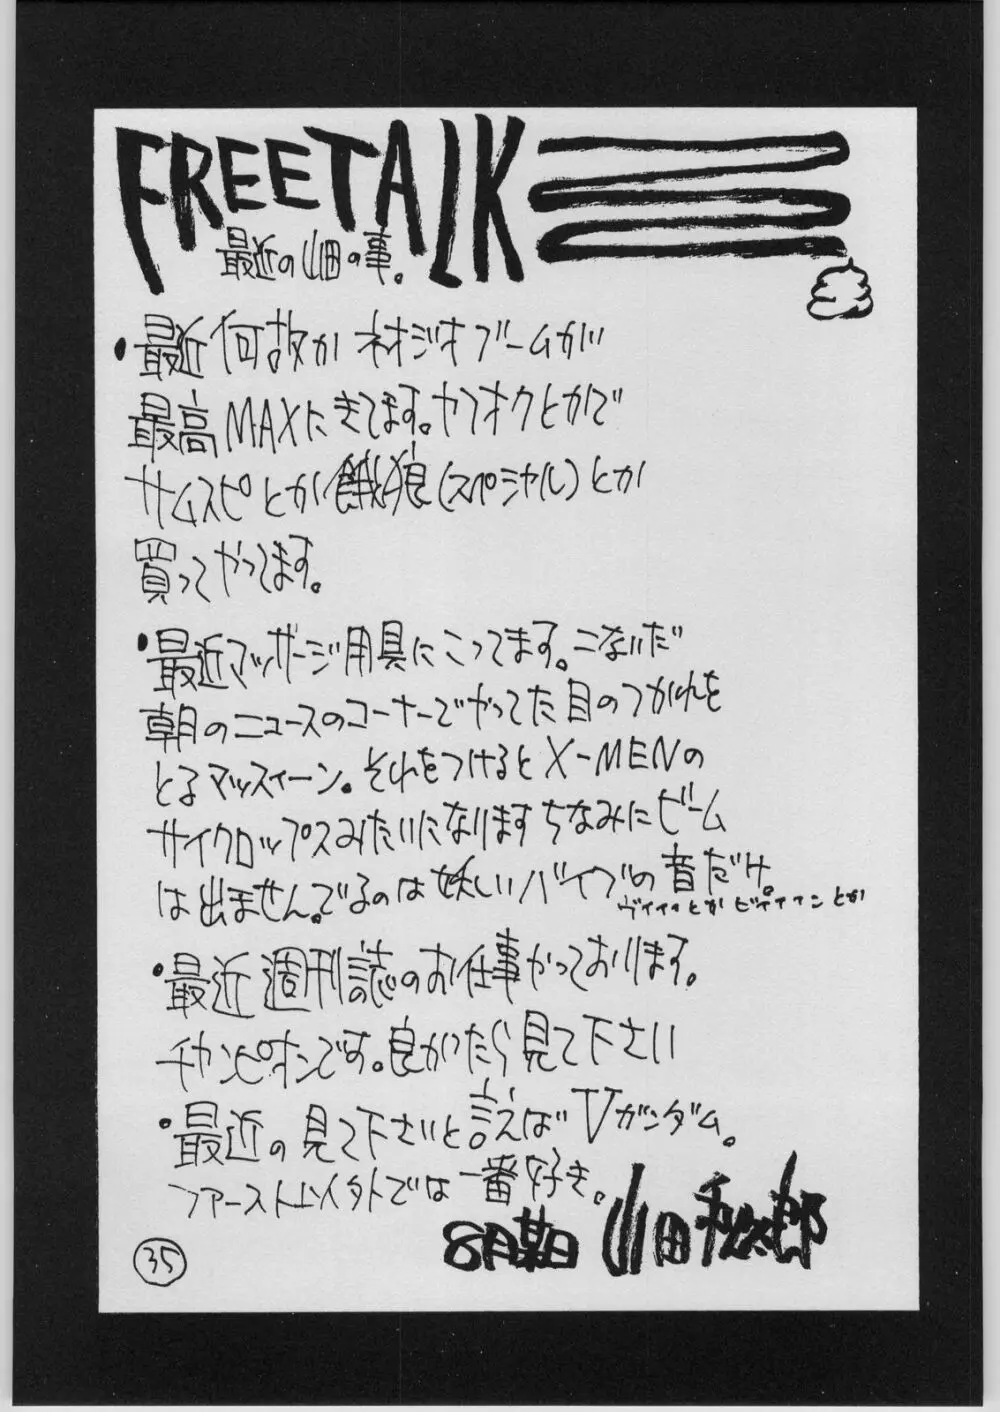 FREETALK
最近の山田の事。
・最近何故かネオジオブームが
最高MAXにきてます。ヤフオクとかで
サムスピとか餓狼(スペシャル)とか
買ってやってます。
・最近マッサージ用具にこってます。こないだ
朝のニュースのコーナーでやってた目のつかれを
とるマッスィーン。それをつけるとX-MENの
サイクロップスみたいになります ちなみにビーム
は出ません。でるのは妖しいバイブの音だけ。
ヴィィィとか ビィィィンとか
・最近週刊誌のお仕事やっております。
チャンピオンです。良かったら見て下さい
・最近の見て下さいと言えばVガンダム。
ファースト以外では一番好き。
8月某日 山田秀太郎
35